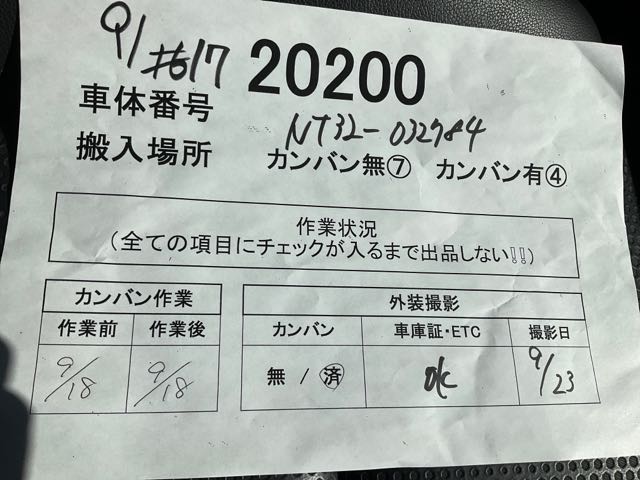 Q1 #617 20200
車体番号 NT32-032784
搬入場所 カンバン無⑦ カンバン有④
作業状況
(全ての項目にチェックが入るまで出品しない!!)
カンバン作業 外装撮影
作業前 作業後 カンバン 車庫証・ETC 撮影日
9/18 9/18 無 / 済 o/c 9/23